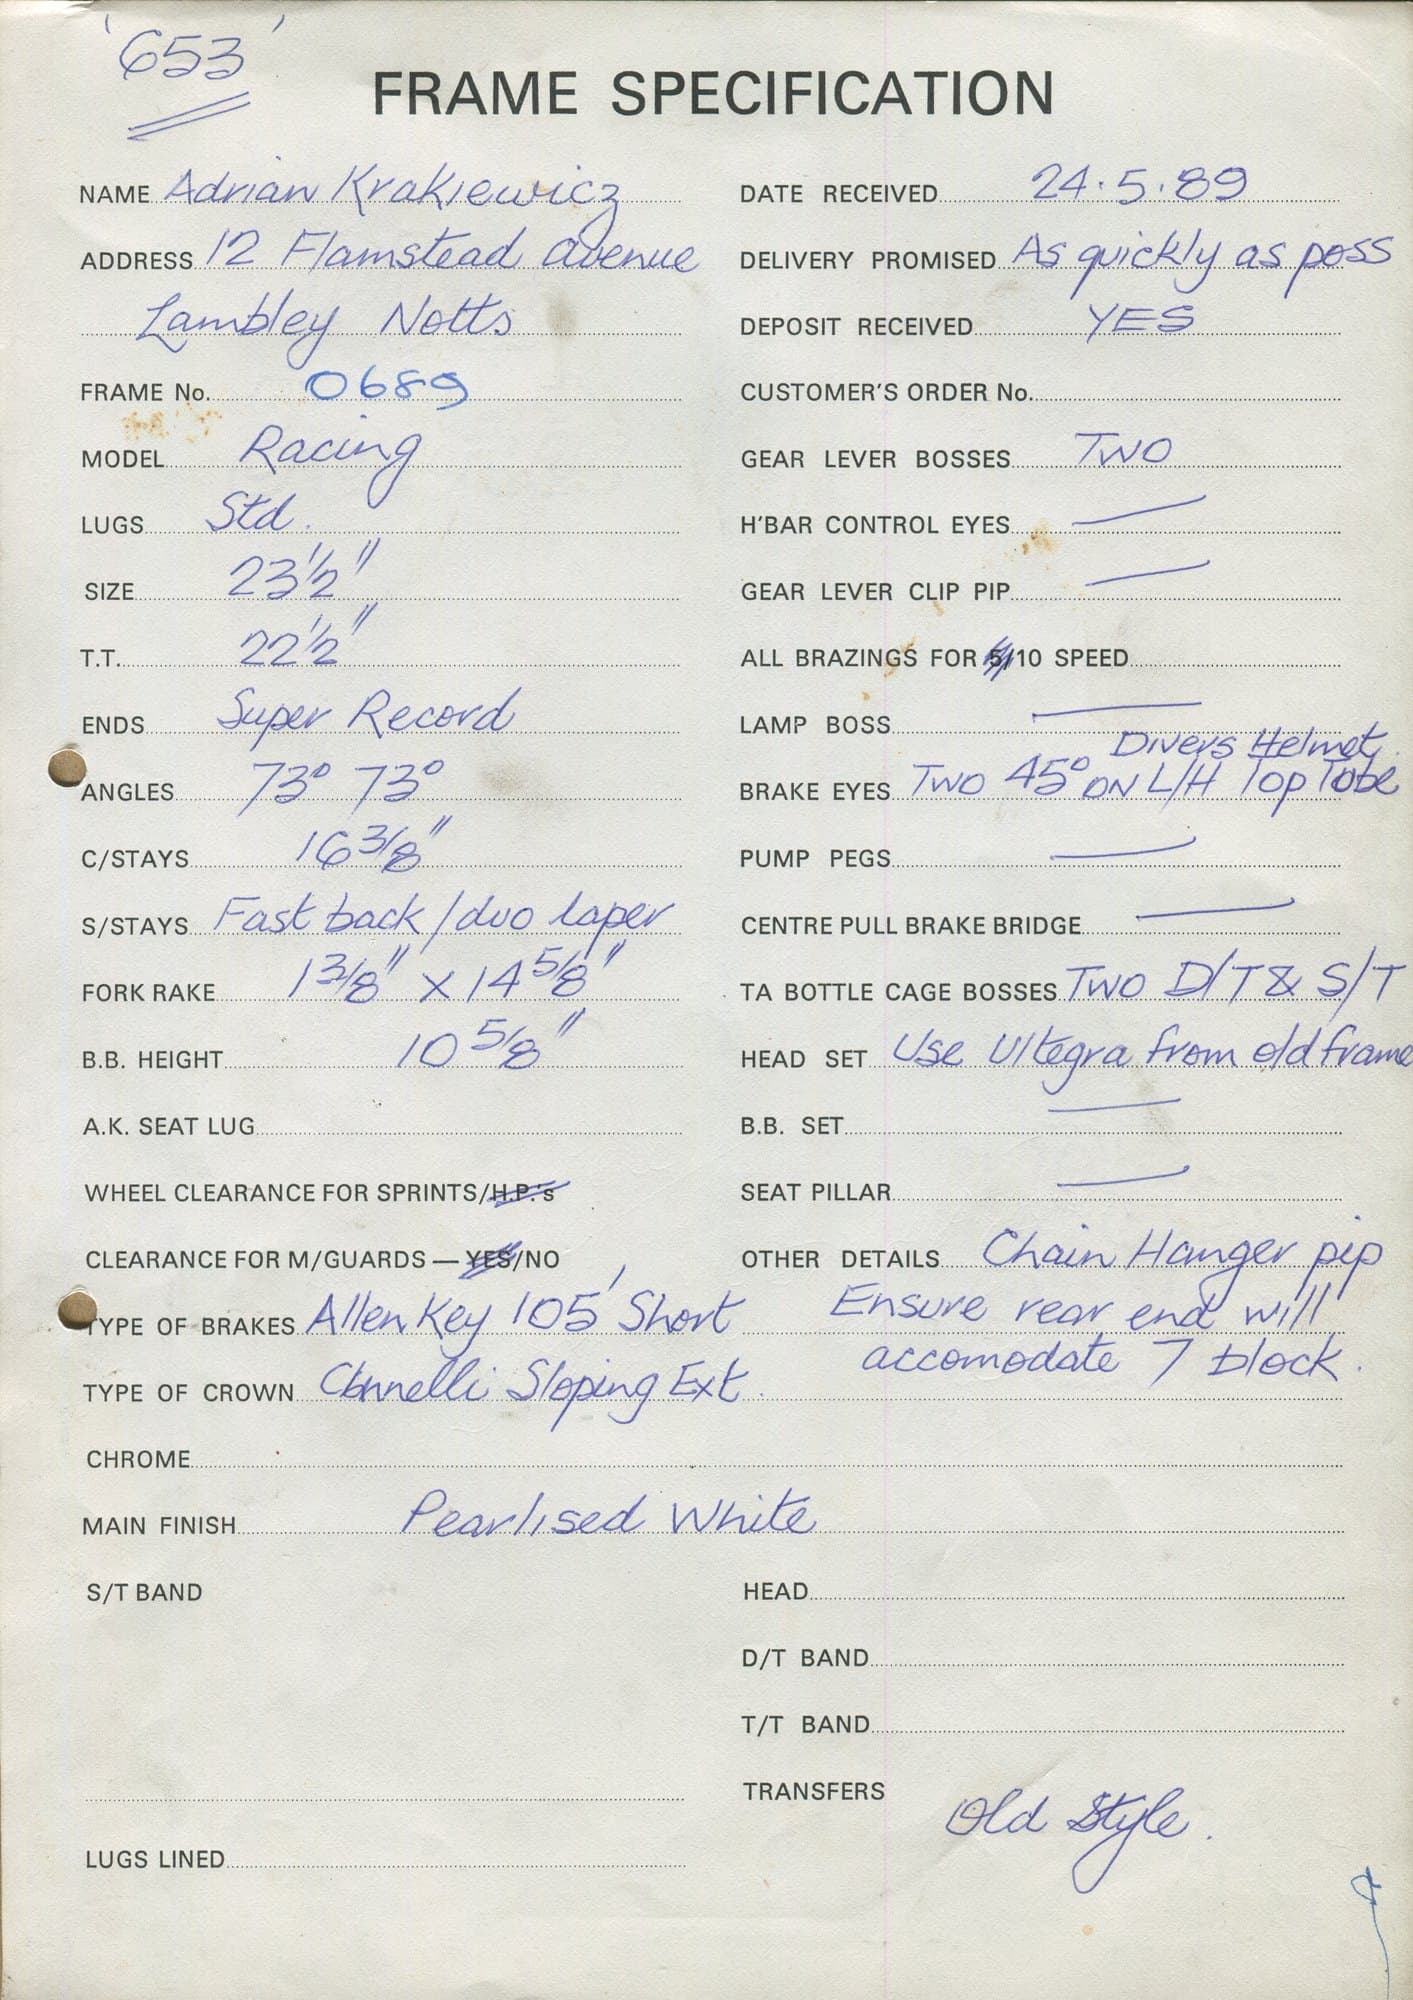 '653'
FRAME SPECIFICATION
NAME Adrian Krakiewicz
ADDRESS 12 Flamstead avenue
Lambley Notts
FRAME No. 0689
MODEL Racing
LUGS Std.
SIZE 23 1/2"
T.T. 22 1/2"
ENDS Super Record
ANGLES 73° 73°
C/STAYS 16 3/8"
S/STAYS Fast back / duo taper
FORK RAKE 1 3/8" x 14 5/8"
B.B. HEIGHT 10 5/8"
A.K. SEAT LUG
WHEEL CLEARANCE FOR SPRINTS/H.P.'s
CLEARANCE FOR M/GUARDS — YES/NO
TYPE OF BRAKES Allen Key 105 Short
TYPE OF CROWN Cinnelli Sloping Ext.
CHROME
MAIN FINISH Pearlised White
S/T BAND
LUGS LINED
DATE RECEIVED 24.5.89
DELIVERY PROMISED As quickly as poss
DEPOSIT RECEIVED YES
CUSTOMER'S ORDER No.
GEAR LEVER BOSSES TWO
H'BAR CONTROL EYES —
GEAR LEVER CLIP PIP —
ALL BRAZINGS FOR 5/10 SPEED
LAMP BOSS —
Divers Helmet
BRAKE EYES TWO 45° ON L/H Top Tube
PUMP PEGS —
CENTRE PULL BRAKE BRIDGE —
TA BOTTLE CAGE BOSSES TWO D/T & S/T
HEAD SET Use Ultegra from old frame
B.B. SET —
SEAT PILLAR —
OTHER DETAILS Chain Hanger pip
Ensure rear end will
accomodate 7 block.
HEAD
D/T BAND
T/T BAND
TRANSFERS
Old Style.